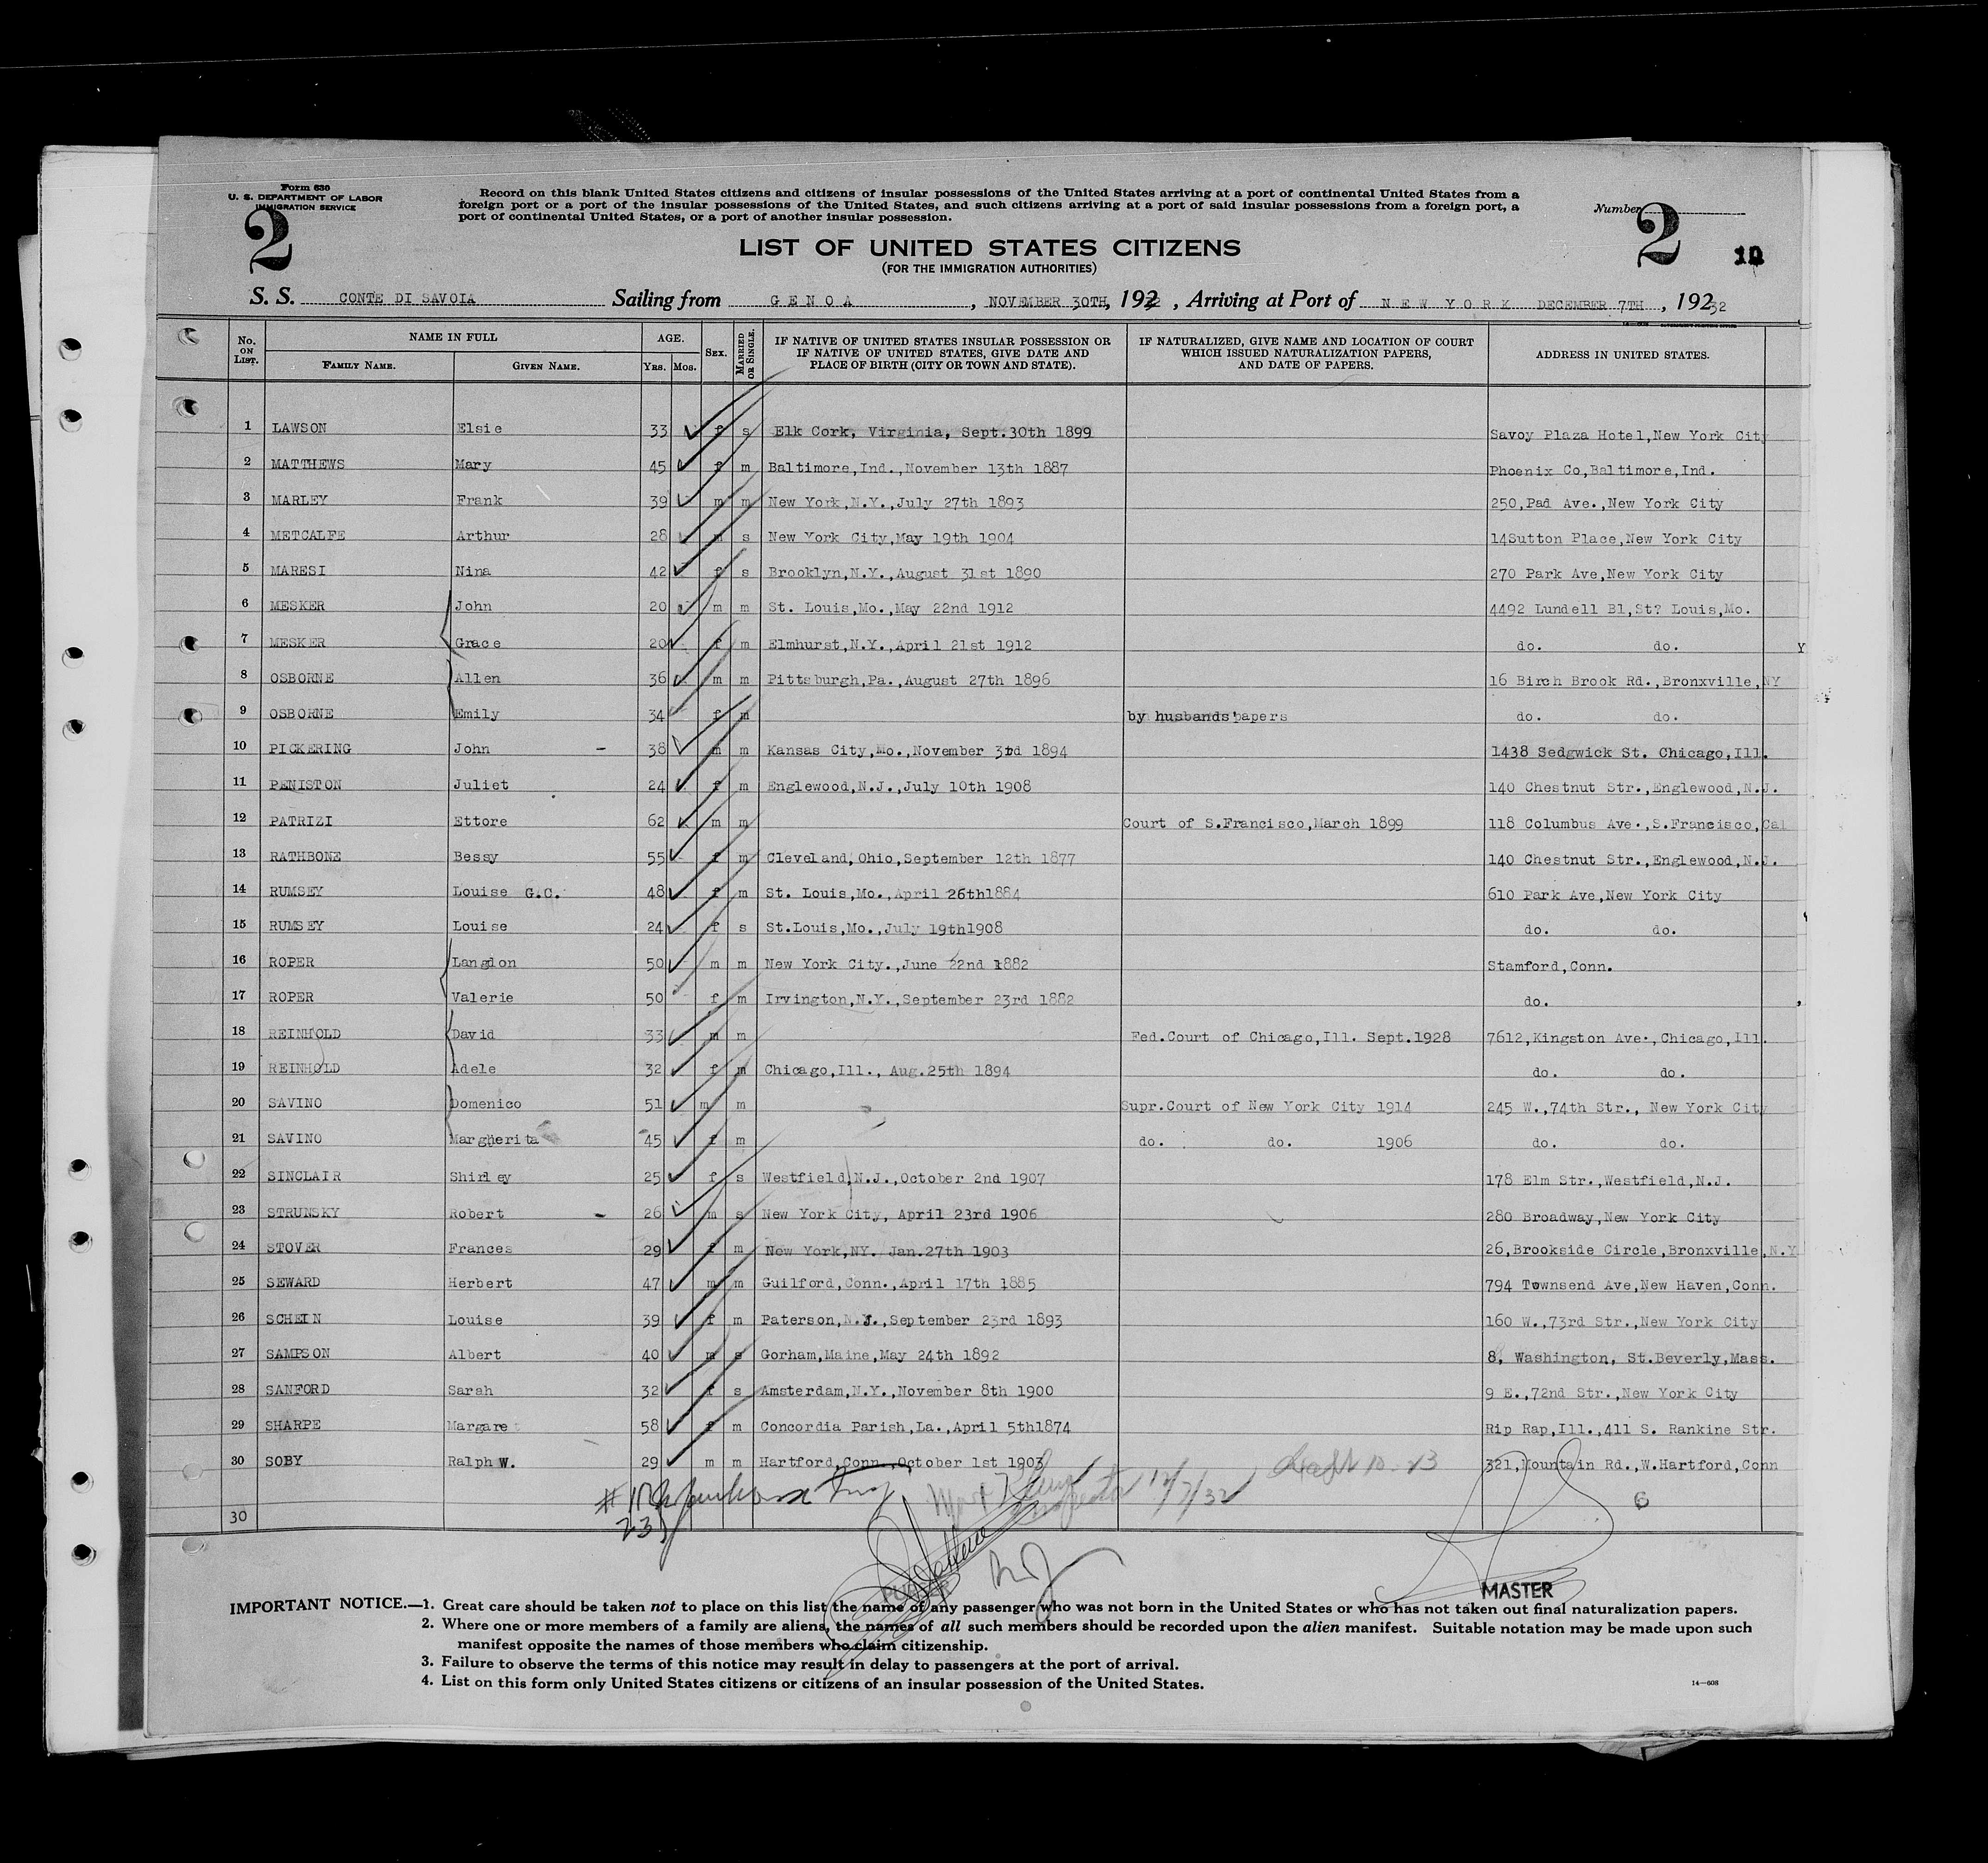 Form 630
U. S. DEPARTMENT OF LABOR
IMMIGRATION SERVICE
Record on this blank United States citizens and citizens of insular possessions of the United States arriving at a port of continental United States from a
foreign port or a port of the insular possessions of the United States, and such citizens arriving at a port of said insular possessions from a foreign port, a
port of continental United States, or a port of another insular possession.
Number
2 2 10
LIST OF UNITED STATES CITIZENS
(FOR THE IMMIGRATION AUTHORITIES)
S. S. CONTE DI SAVOIA Sailing from GENOA, NOVEMBER 30TH, 1932, Arriving at Port of NEW YORK DECEMBER 7TH, 19232
No. ON LIST. NAME IN FULL FAMILY NAME. GIVEN NAME. AGE. YRS. MOS. SEX. MARRIED OR SINGLE. IF NATIVE OF UNITED STATES INSULAR POSSESSION OR IF NATIVE OF UNITED STATES, GIVE DATE AND PLACE OF BIRTH (CITY OR TOWN AND STATE). IF NATURALIZED, GIVE NAME AND LOCATION OF COURT WHICH ISSUED NATURALIZATION PAPERS, AND DATE OF PAPERS. ADDRESS IN UNITED STATES.
1 LAWSON Elsie 33 f s Elk Cork, Virginia, Sept.30th 1899 Savoy Plaza Hotel,New York City
2 MATTHEWS Mary 45 f m Baltimore,Ind.,November 13th 1887 Phoenix Co,Baltimore,Ind.
3 MARLEY Frank 39 m m New York,N.Y.,July 27th 1893 250,Pad Ave.,New York City
4 METCALFE Arthur 28 m s New York City,May 19th 1904 14Sutton Place,New York City
5 MARESI Nina 42 f s Brooklyn,N.Y.,August 31st 1890 270 Park Ave,New York City
6 MESKER John 20 m m St. Louis,Mo.,May 22nd 1912 4492 Lundell Bl,St? Louis,Mo.
7 MESKER Grace 20 f m Elmhurst,N.Y.,April 21st 1912 do. do.
8 OSBORNE Allen 36 m m Pittsburgh,Pa.,August 27th 1896 16 Birch Brook Rd.,Bronxville,NY
9 OSBORNE Emily 34 f m by husbands'papers do. do.
10 PICKERING John - 38 m m Kansas City,Mo.,November 3rd 1894 1438 Sedgwick St. Chicago,Ill.
11 PENISTON Juliet 24 f m Englewood,N.J.,July 10th 1908 140 Chestnut Str.,Englewood,N.J.
12 PATRIZI Ettore 62 m m Court of S.Francisco,March 1899 118 Columbus Ave.,S.Francisco,Cal
13 RATHBONE Bessy 55 f m Cleveland,Ohio,September 12th 1877 140 Chestnut Str.,Englewood,N.J.
14 RUMSEY Louise G.C. 48 f m St. Louis,Mo.,April 26th1884 610 Park Ave,New York City
15 RUMSEY Louise 24 f s St.Louis,Mo.,July 19th1908 do. do.
16 ROPER Langdon 50 m m New York City.,June 22nd 1882 Stamford,Conn.
17 ROPER Valerie 50 f m Irvington,N.Y.,September 23rd 1882 do.
18 REINHOLD David 33 m m Fed.Court of Chicago,Ill. Sept.1928 7612,Kingston Ave.,Chicago,Ill.
19 REINHOLD Adele 32 f m Chicago,Ill., Aug.25th 1894 do. do.
20 SAVINO Domenico 51 m m Supr.Court of New York City 1914 245 W.,74th Str., New York City
21 SAVINO Margherita 45 f m do. do. 1906 do. do.
22 SINCLAIR Shirley 25 f s Westfield,N.J.,October 2nd 1907 178 Elm Str.,Westfield,N.J.
23 STRUNSKY Robert - 26 m s New York City, April 23rd 1906 280 Broadway,New York City
24 STOVER Frances 29 f m New York,NY. Jan.27th 1903 26,Brookside Circle,Bronxville,N.Y
25 SEWARD Herbert 47 m m Guilford,Conn.,April 17th 1885 794 Townsend Ave,New Haven,Conn.
26 SCHEIN Louise 39 f m Paterson,N.J.,September 23rd 1893 160 W.,73rd Str.,New York City
27 SAMPSON Albert 40 m s Gorham,Maine,May 24th 1892 8, Washington, St.Beverly,Mass.
28 SANFORD Sarah 32 f s Amsterdam,N.Y.,November 8th 1900 9 E.,72nd Str.,New York City
29 SHARPE Margare 58 f m Concordia Parish,La.,April 5th1874 Rip Rap,Ill.,411 S. Rankine Str.
30 SOBY Ralph W. 29 m m Hartford,Conn.,October 1st 1903 321,Mountain Rd.,W.Hartford,Conn
12/7/32
23
30
6
MASTER
IMPORTANT NOTICE.—1. Great care should be taken not to place on this list the name of any passenger who was not born in the United States or who has not taken out final naturalization papers.
2. Where one or more members of a family are aliens, the names of all such members should be recorded upon the alien manifest. Suitable notation may be made upon such
manifest opposite the names of those members who claim citizenship.
3. Failure to observe the terms of this notice may result in delay to passengers at the port of arrival.
4. List on this form only United States citizens or citizens of an insular possession of the United States.
14—608